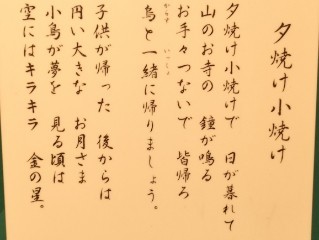 夕焼け小焼け
夕焼け小焼けで 日が暮れて
山のお寺の 鐘が鳴る
お手々つないで 皆帰ろ
烏と一緒に帰りましょう。
からす いっしょ
子供が帰った 後からは
円い大きな お月さま
小鳥が夢を 見る頃は
空にはキラキラ 金の星。